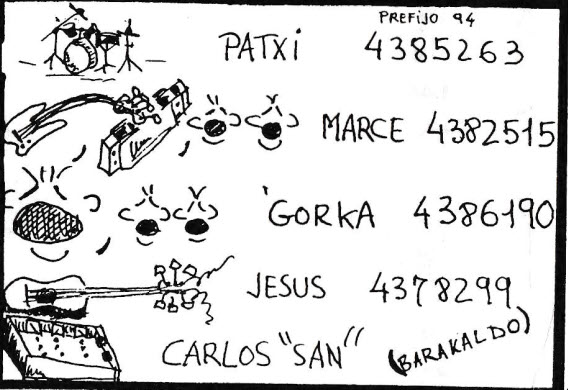 PREFIJO 94
PATXI 4385263
MARCE 4382515
GORKA 4386190
JESUS 4378299
CARLOS "SAN" (BARAKALDO)